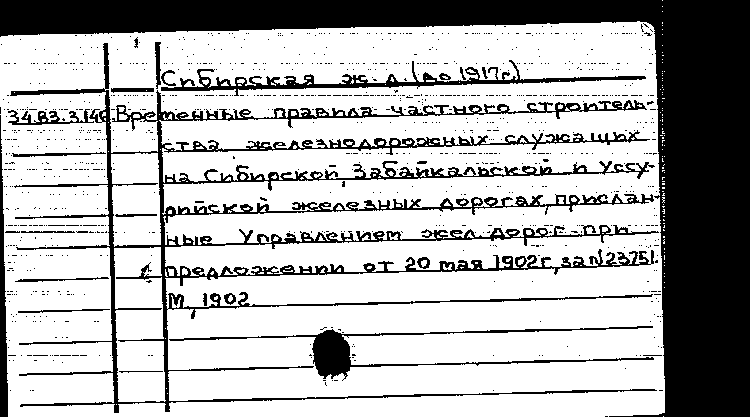 Сибирская ж. д. (до 1917г.)
34.83.3.140. Временные правила частного строитель-
ства железнодорожных служащих
на Сибирской, Забайкальской и Уссу-
рийской железных дорогах, прислан-
ные Управлением жел. дорог при
предложении от 20 мая 1902г, за N23751.
М., 1902.